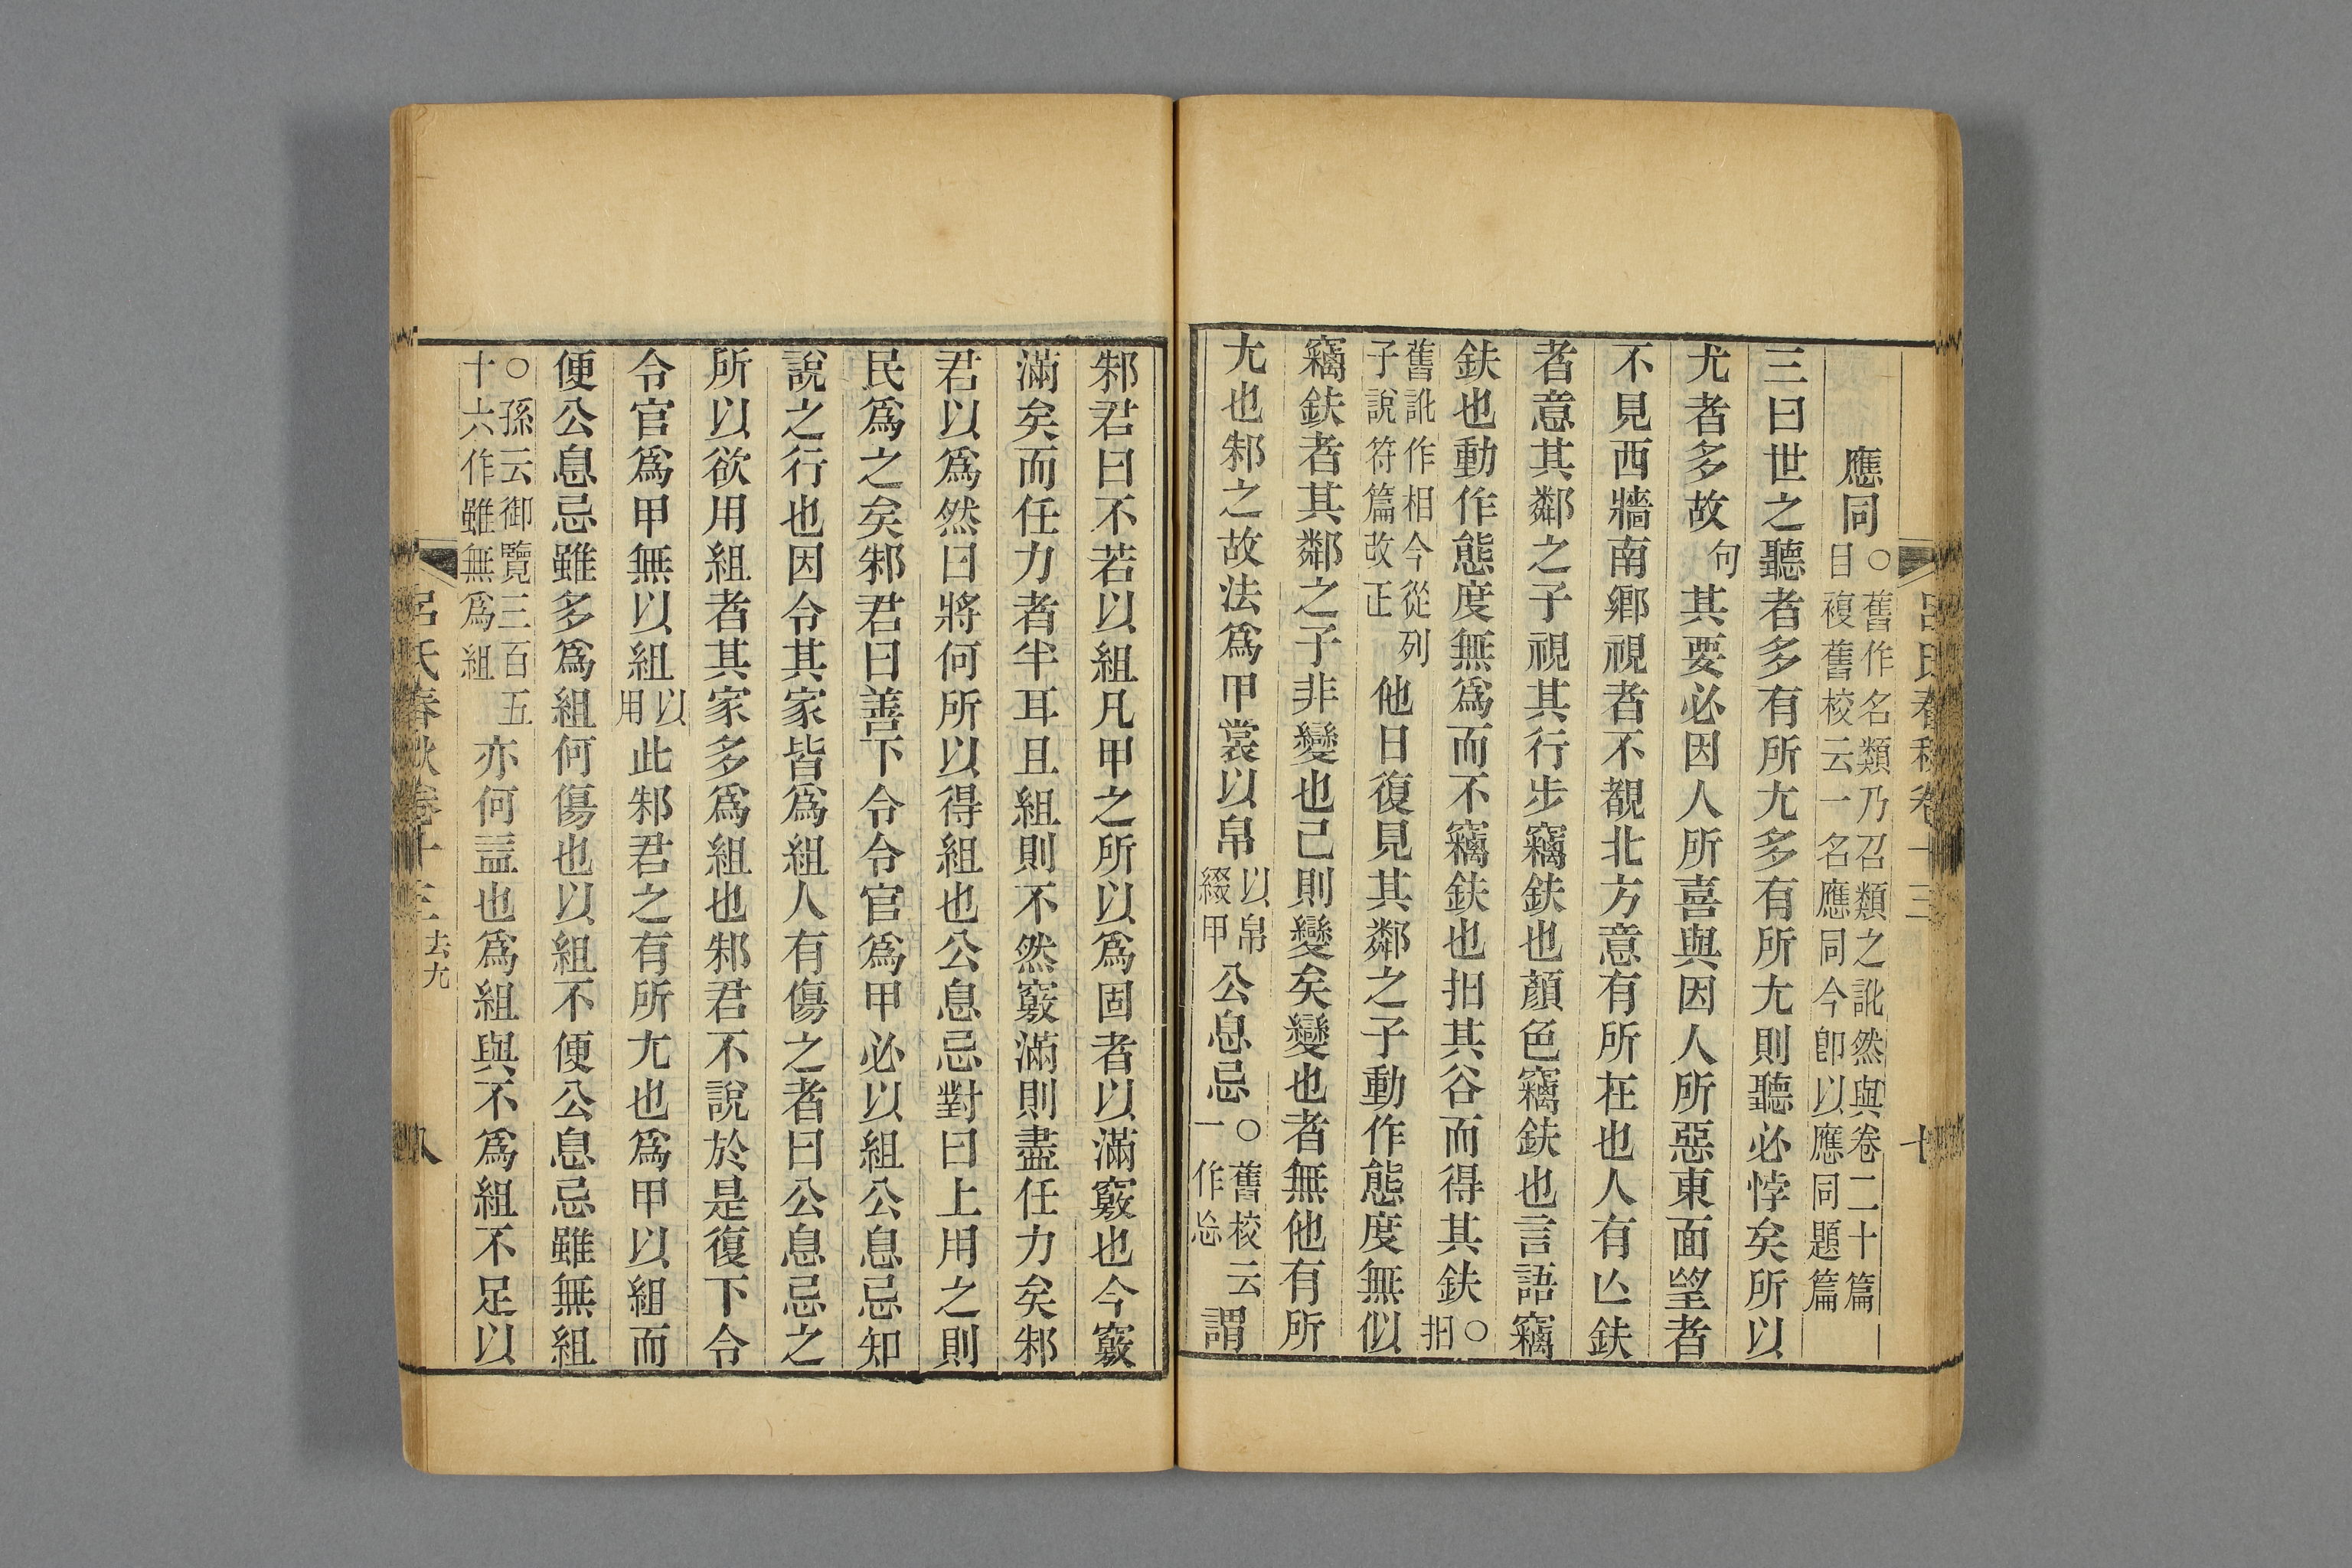 應同○舊作名類乃召類之訛然與卷二十篇
目複舊校云一名應同今卽以應同題篇
三曰世之聽者多有所尢多有所尢則聽必悖矣所以
尢者多故句其要必因人所喜與因人所惡東面望者
不見西牆南鄉視者不覩北方意有所在也人有亾鈇
者意其鄰之子視其行步竊鈇也顏色竊鈇也言語竊
鈇也動作態度無爲而不竊鈇也抇其谷而得其鈇○抇
舊訛作相今從列
子說符篇改正他日復見其鄰之子動作態度無似
竊鈇者其鄰之子非變也己則變矣變也者無他有所
尢也邾之故法爲甲裳以帛以帛
綴甲公息忌○舊校云
一作忩謂
邾君曰不若以組凡甲之所以爲固者以滿竅也今竅
滿矣而任力者半耳且組則不然竅滿則盡任力矣邾
君以爲然曰將何所以得組也公息忌對曰上用之則
民爲之矣邾君曰善下令令官爲甲必以組公息忌知
說之行也因令其家皆爲組人有傷之者曰公息忌之
所以欲用組者其家多爲組也邾君不說於是復下令
令官爲甲無以組以
用此邾君之有所尢也爲甲以組而
便公息忌雖多爲組何傷也以組不便公息忌雖無組
○孫云御覽三百五
十六作雖無爲組亦何益也爲組與不爲組不足以
呂氏春秋卷十三 去尢 八